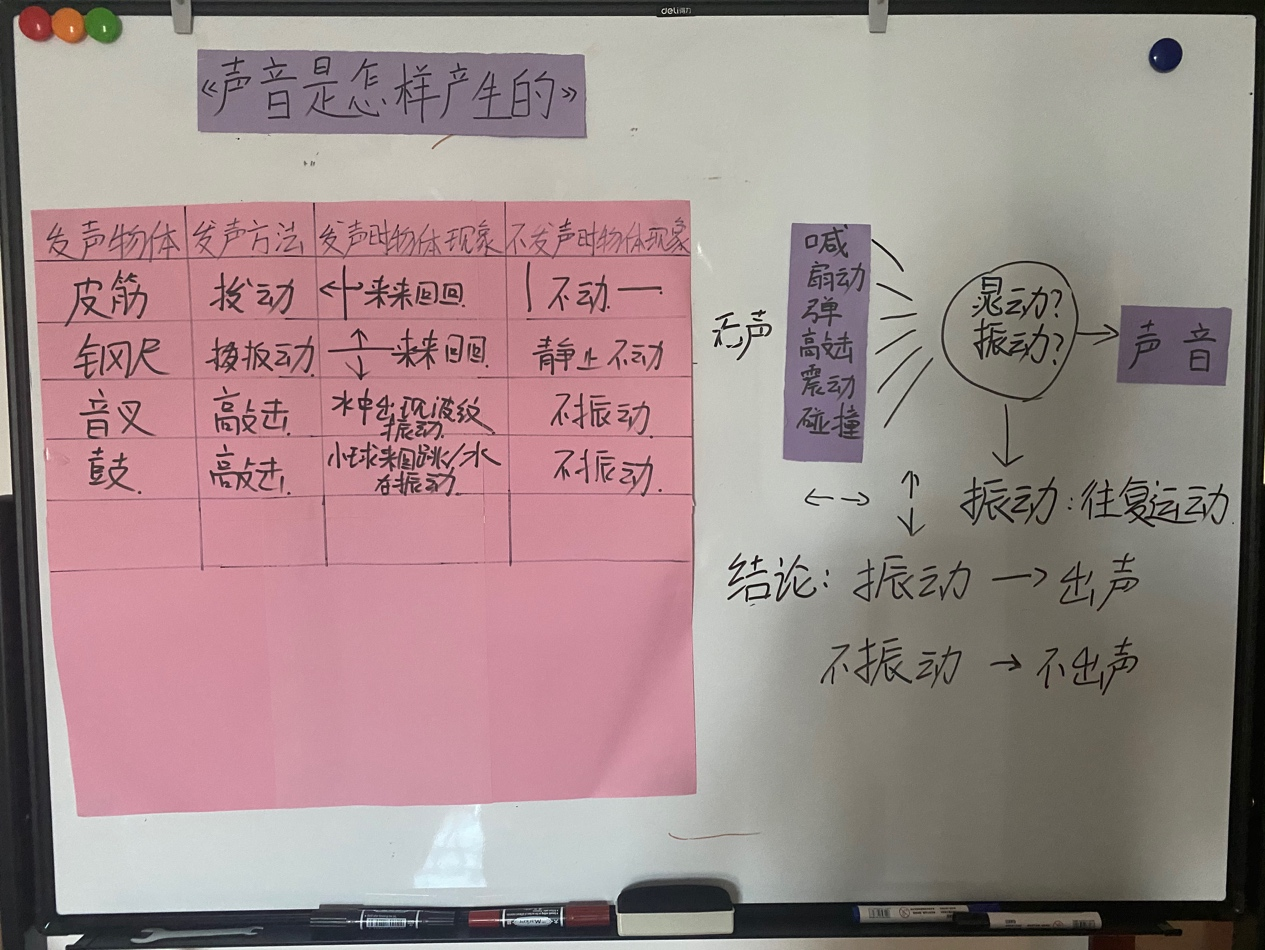 deli得力
《声音是怎样产生的》
发声物体 发声方法 发声时物体现象 不发声时物体现象
皮筋 拨动 来来回回 不动
钢尺 扳动 来来回回 静止不动
音叉 敲击 水中出现波纹
振动 不振动
鼓 敲击 小球来回跳/水
在振动 不振动
无声
喊
扇动
弹
敲击
震动
碰撞
晃动?
振动?
声音
振动:往复运动
结论: 振动 → 出声
不振动 → 不出声